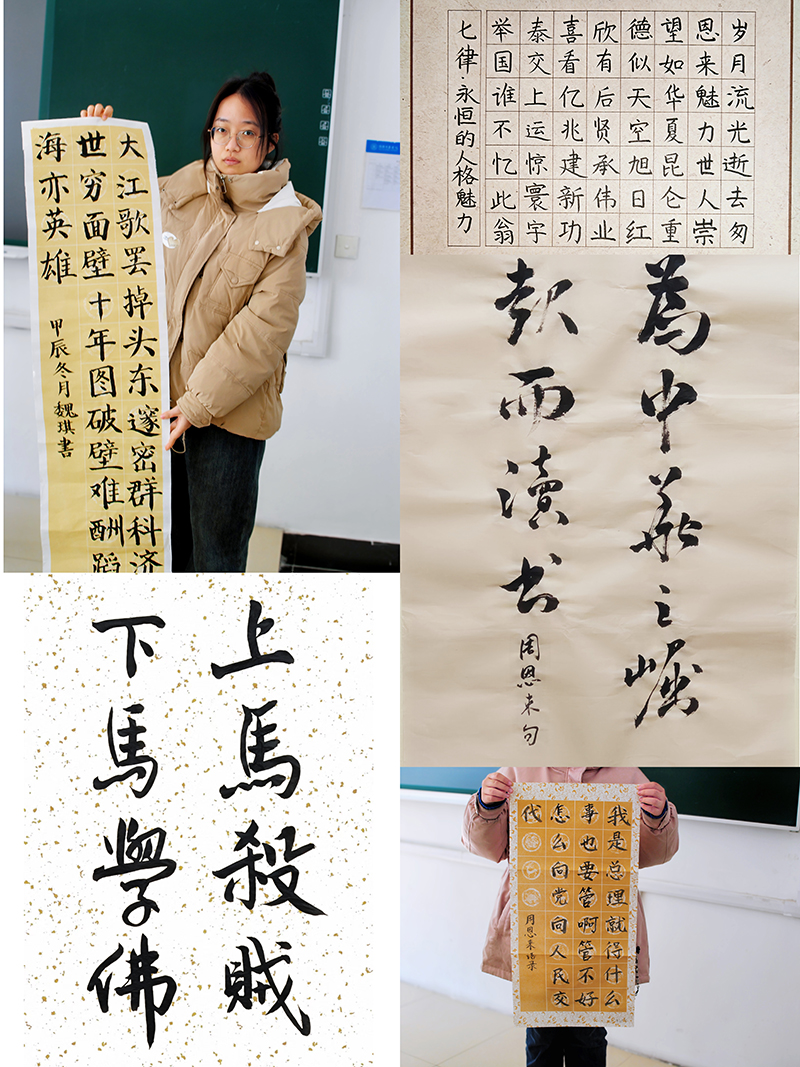 大江歌罢掉头东邃密群科济
世穷面壁十年图破壁难酬蹈
海亦英雄
甲辰冬月魏琪書
岁月流光逝去匆
恩来魅力世人崇
望如华夏昆仑重
德似天空旭日红
欣有后贤承伟业
喜看亿兆建新功
泰交上运惊寰宇
举国谁不忆此翁
七律·永恒的人格魅力
為中華之崛
起而讀书
周恩来句
上馬殺賊
下馬學佛
我是总理就得什么
事也要管啊管不好
怎么向党向人民交
代
周恩来语录